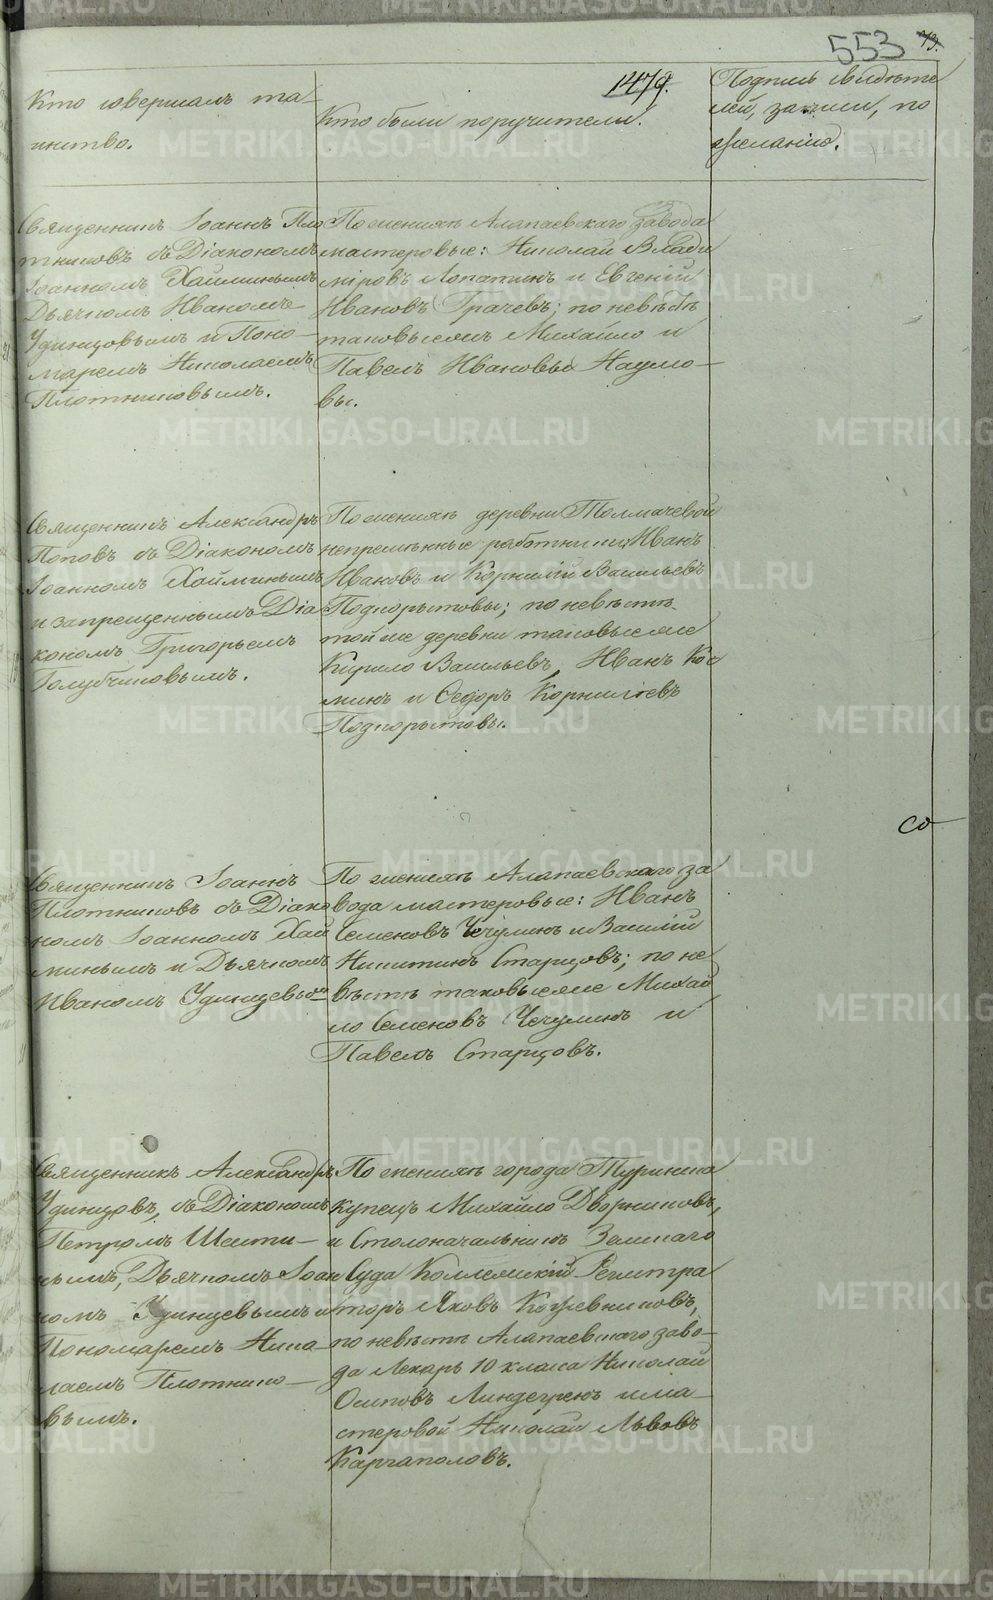 553
73.
1479.
Кто совершалъ та-
инство.
Кто были поручители.
Подпись свидѣте
лей, записи, по
желанію.
Священникъ Іоаннъ Пло
тниковъ съ Діакономъ
Іоанномъ Хайминымъ
Дьячкомъ Иваномъ
Удинцовымъ и Поно-
маремъ Николаемъ
Плотниковымъ.
По женихѣ Алапаевскаго завода
мастеровые: Николай Влади
міровъ Лопатинъ и Евгеній
Ивановъ Грачевъ; по невѣстѣ
таковыеже Михайло и
Павелъ Ивановы Наумо-
вы.
Священникъ Александръ
Поповъ съ Діакономъ
Іоанномъ Хайминымъ
и запрещеннымъ Діа
кономъ Григорьемъ
Голубчиковымъ.
По женихѣ деревни Толмачевой
непремѣнные работники Иванъ
Ивановъ и Корнилій Васильевъ
Подкорытовы; по невѣстѣ
той же деревни таковые же
Кирило Васильевъ, Иванъ Кос
минъ и Федоръ Корниліевъ
Подкорытовы.
Священникъ Іоаннъ
Плотниковъ съ Діако
номъ Іоанномъ Хай
минымъ и Дьячкомъ
Иваномъ Удинцевымъ
По женихѣ Алапаевскаго за
вода мастеровые: Иванъ
Семеновъ Чечулинъ и Василій
Никитинъ Старцовъ; по не
вѣстѣ таковыеже Михай
ло Семеновъ Чечулинъ и
Павелъ Старцовъ.
со
Священникъ Александръ
Удинцовъ, съ Діакономъ
Петромъ Шести-
нымъ, Дьячкомъ Іоан
номъ Удинцевымъ и
Пономаремъ Нико-
лаемъ Плотнико-
вымъ.
По женихѣ города Туринска
купецъ Михайло Дворниковъ,
и Столоначальникъ Земскаго
Суда Коллежскій Регистра
торъ Яковъ Кожевниковъ,
по невѣстѣ Алапаевскаго заво-
да Лекарь 10 класа Николай
Осиповъ Линдегренъ и ма-
стеровой Николай Львовъ
Каргаполовъ.
METRIKI.GASO-URAL.RU